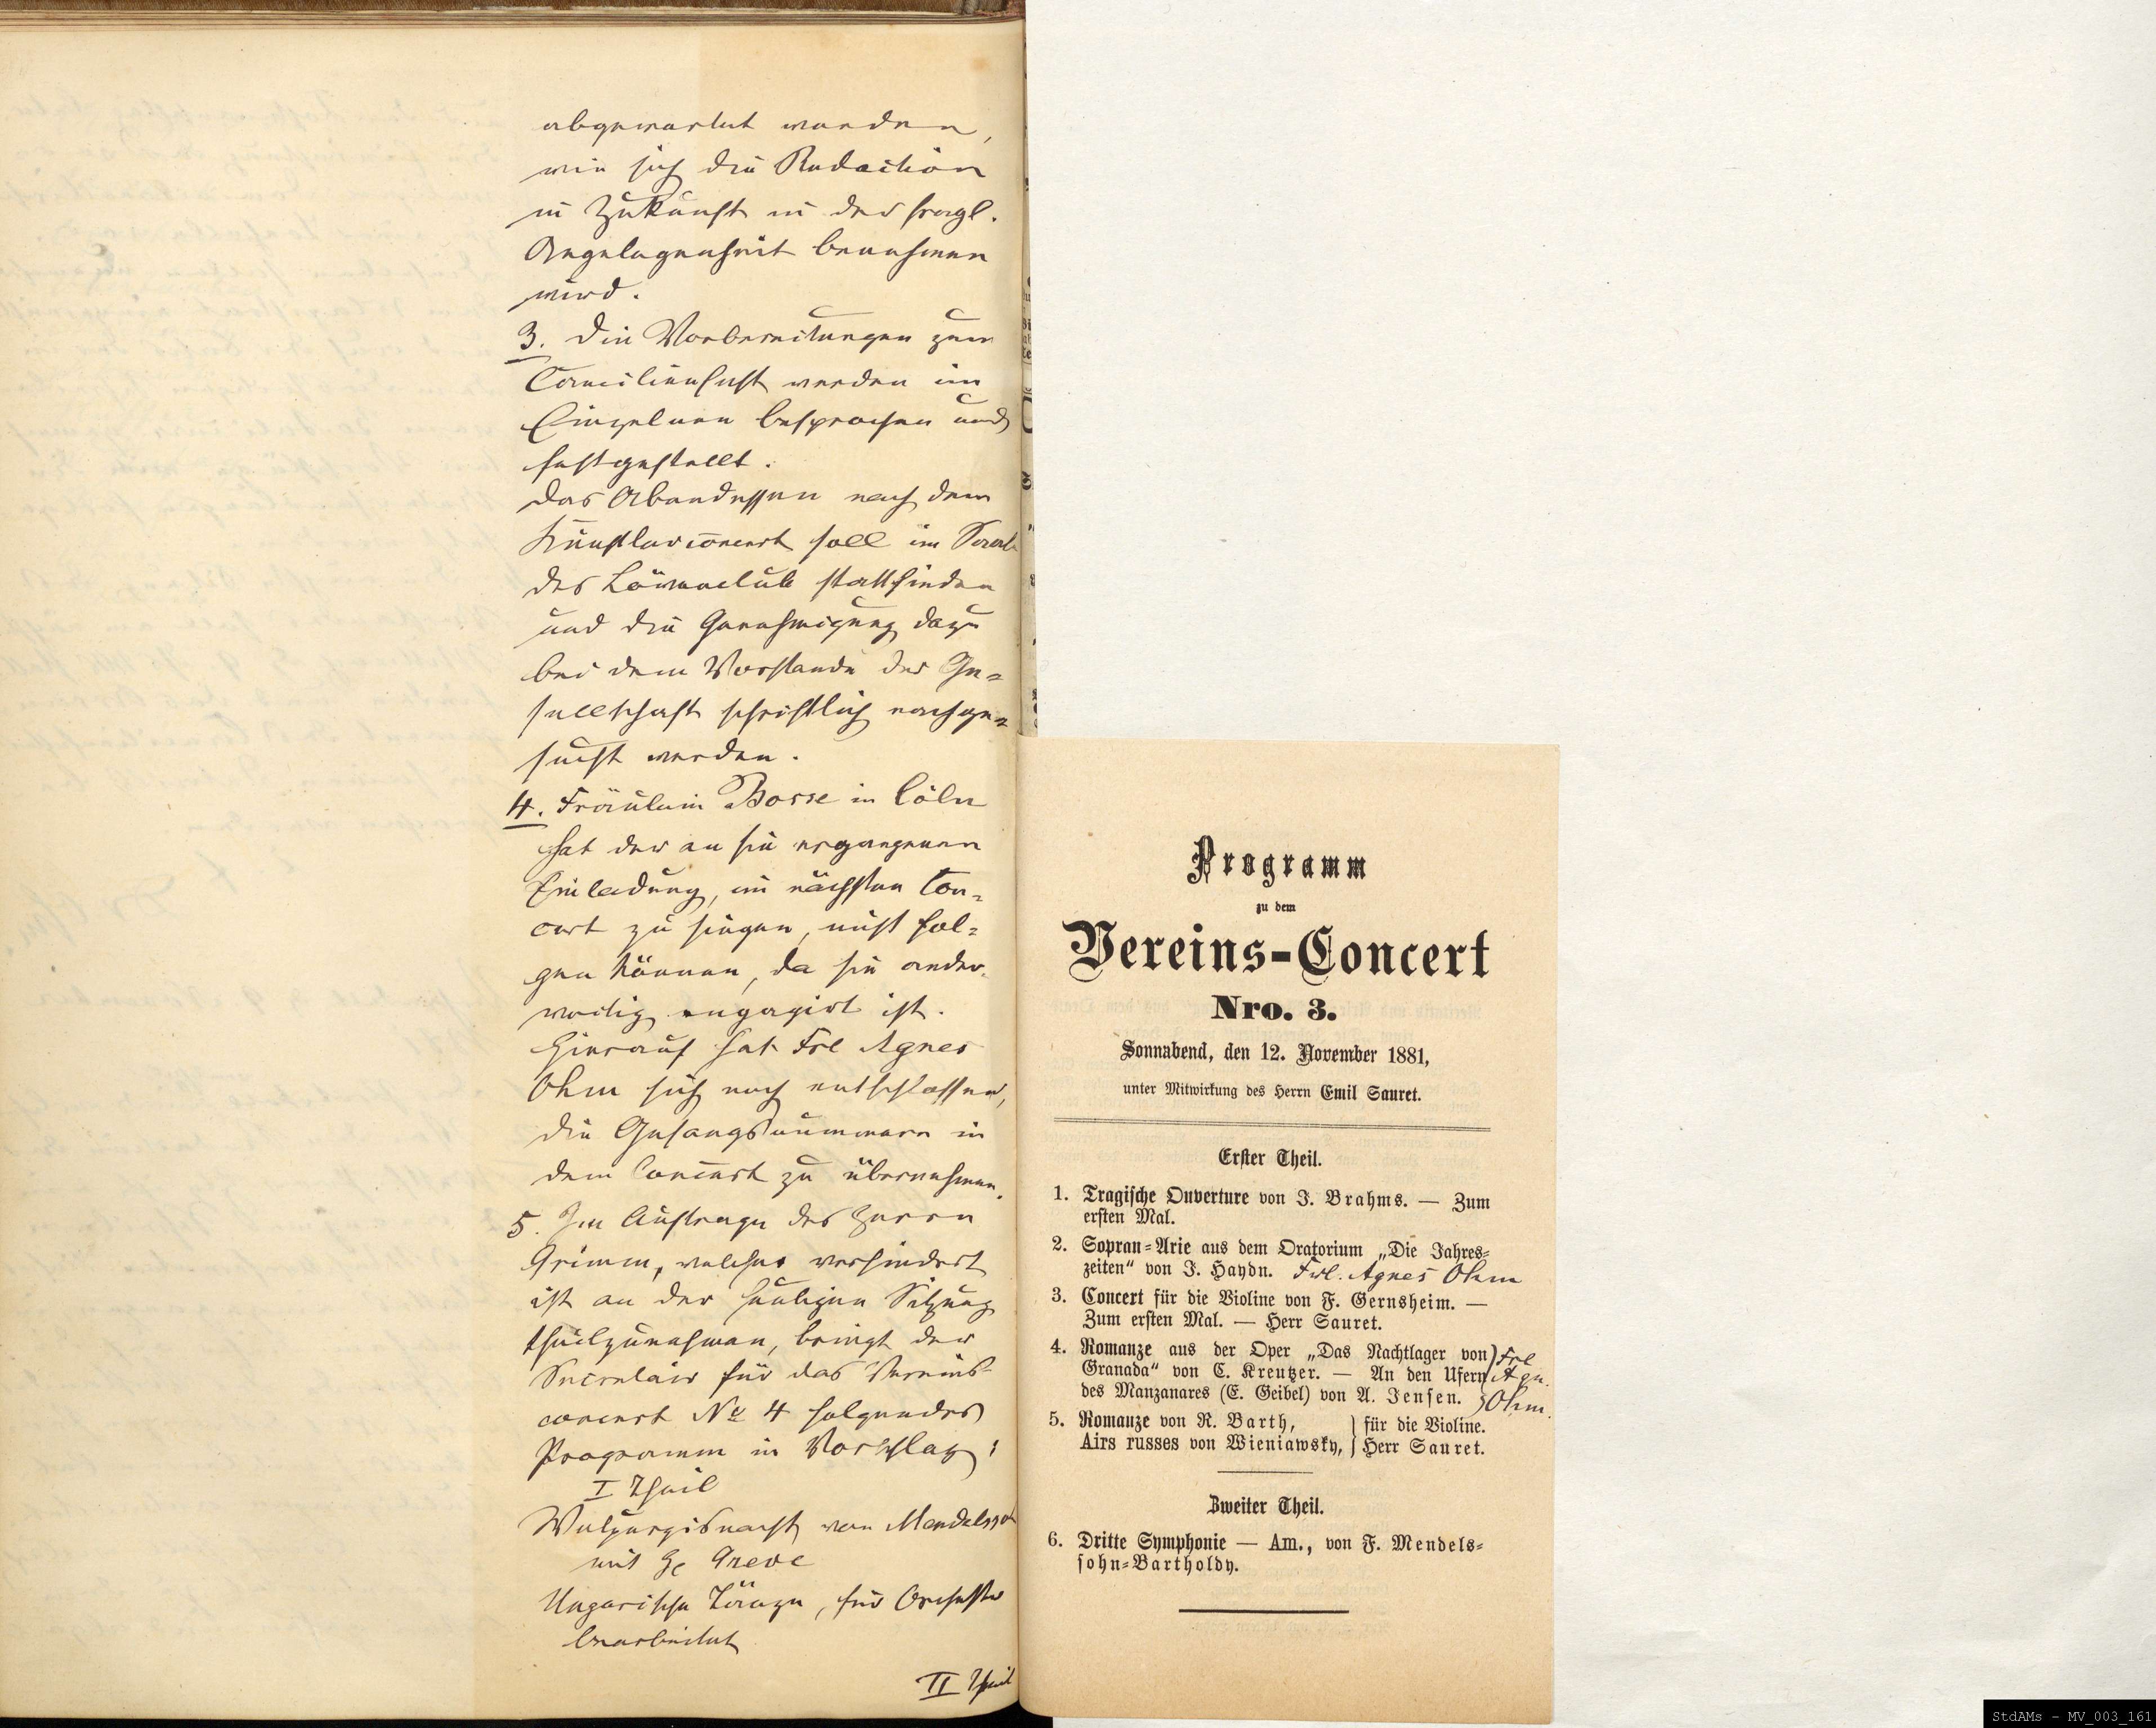 abgewartet werden,
wie sich die Redaction
in Zukunft in der fragl.
Angelegenheit benehmen
wird.
3. Die Vorbereitungen zum
Caecilienfest werden im
Einzelnen besprochen und
festgestellt.
Das Abendessen nach dem
Künstlerconcert soll im Saale
des Löwenclub stattfinden
und die Genehmigung dazu
bei dem Vorstande der Ge-
sellschaft schriftlich nachge-
sucht werden.
4. Fräulein Bosse in Cöln
hat der an sie ergangenen
Einladung, im nächsten Con-
cert zu singen, nicht fol-
gen können, da sie ander-
weitig engagirt ist.
Hierauf hat Frl Agnes
Ohm sich noch entschlossen,
die Gesangsnummern in
dem Concert zu übernehmen.
5. Im Auftrage des Herrn
Grimm, welcher verhindert
ist an der heutigen Sitzung
theilzunehmen, bringt der
Secretair für das Vereins-
concert No 4 folgendes
Programm in Vorschlag:
I Theil
Walpurgisnacht von Mendelssoh
mit H Greve
Ungarische Tänze, für Orchester
bearbeitet
II Theil
Programm
zu dem
Vereins-Concert
Nro. 3.
Sonnabend, den 12. November 1881,
unter Mitwirkung des Herrn Emil Sauret.
Erster Theil.
1. Tragische Ouverture von J. Brahms. — Zum
ersten Mal.
2. Sopran-Arie aus dem Oratorium „Die Jahres-
zeiten“ von J. Haydn. Frl. Agnes Ohm
3. Concert für die Violine von F. Gernsheim. —
Zum ersten Mal. — Herr Sauret.
4. Romanze aus der Oper „Das Nachtlager von Frl
Granada“ von C. Kreutzer. — An den Ufern Agn.
des Manzanares (E. Geibel) von A. Jensen. Ohm.
5. Romanze von R. Barth, } für die Violine.
Airs russes von Wieniawsky, } Herr Sauret.
Zweiter Theil.
6. Dritte Symphonie — Am., von F. Mendels-
sohn-Bartholdy.
StdAMs - MV_003_161